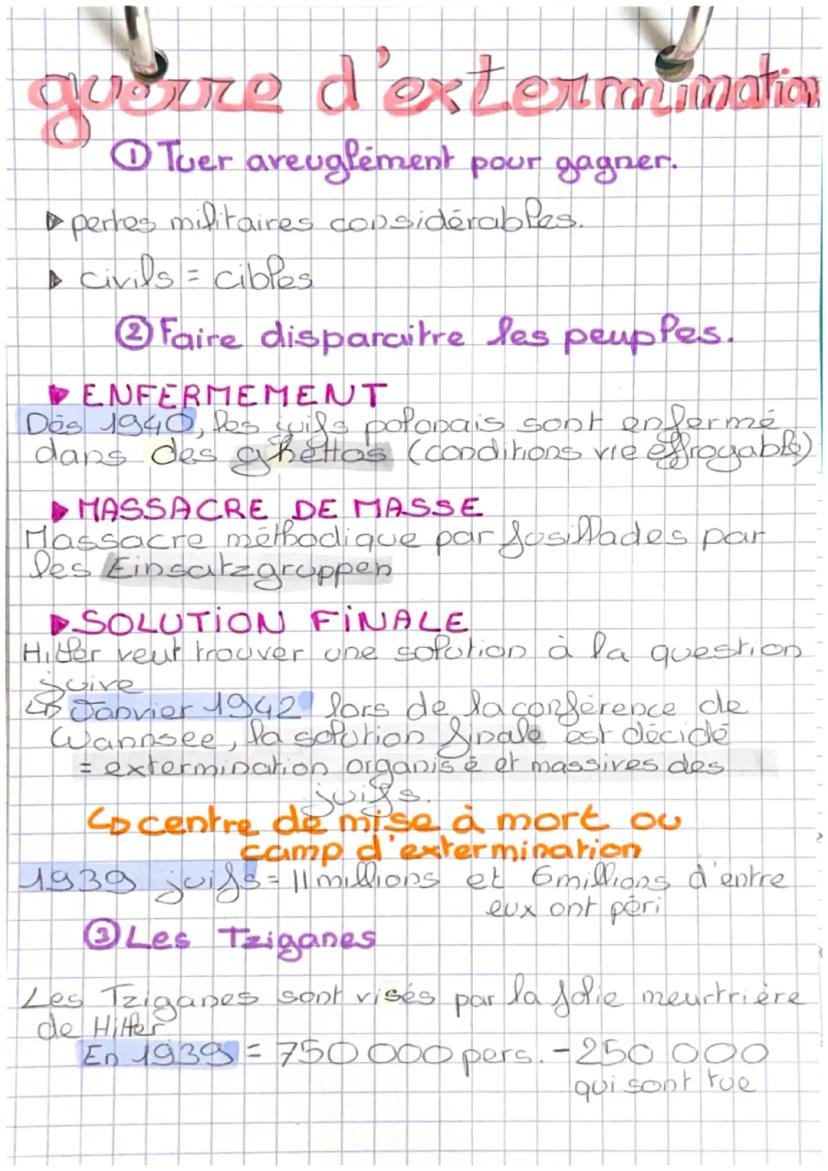 guerre d'extermination
① Tuer aveuglément pour gagner.
▶ pertes militaires considérables.
▶ civils = cibles
② Faire disparaitre les peuples.
▶ ENFERMEMENT
Dès 1940, les juifs polonais sont enfermé
dans des ghettos (conditions vie effroyable)
▶ MASSACRE DE MASSE
Massacre méthodique par fusillades par
les Einsatzgruppen
▶ SOLUTION FINALE
Hitler veut trouver une solution à la question
juive
↳ Janvier 1942 lors de la conférence de
Wannsee, la solution finale est décidé
= extermination organisé et massives des
juifs.
↳ centre de mise à mort ou
camp d'extermination
1939 juifs = 11 millions et 6 millions d'entre
eux ont péri
③ Les Tziganes
Les Tziganes sont visés par la folie meurtrière
de Hitler
En 1939 = 750 000 pers. - 250 000
qui sont tue